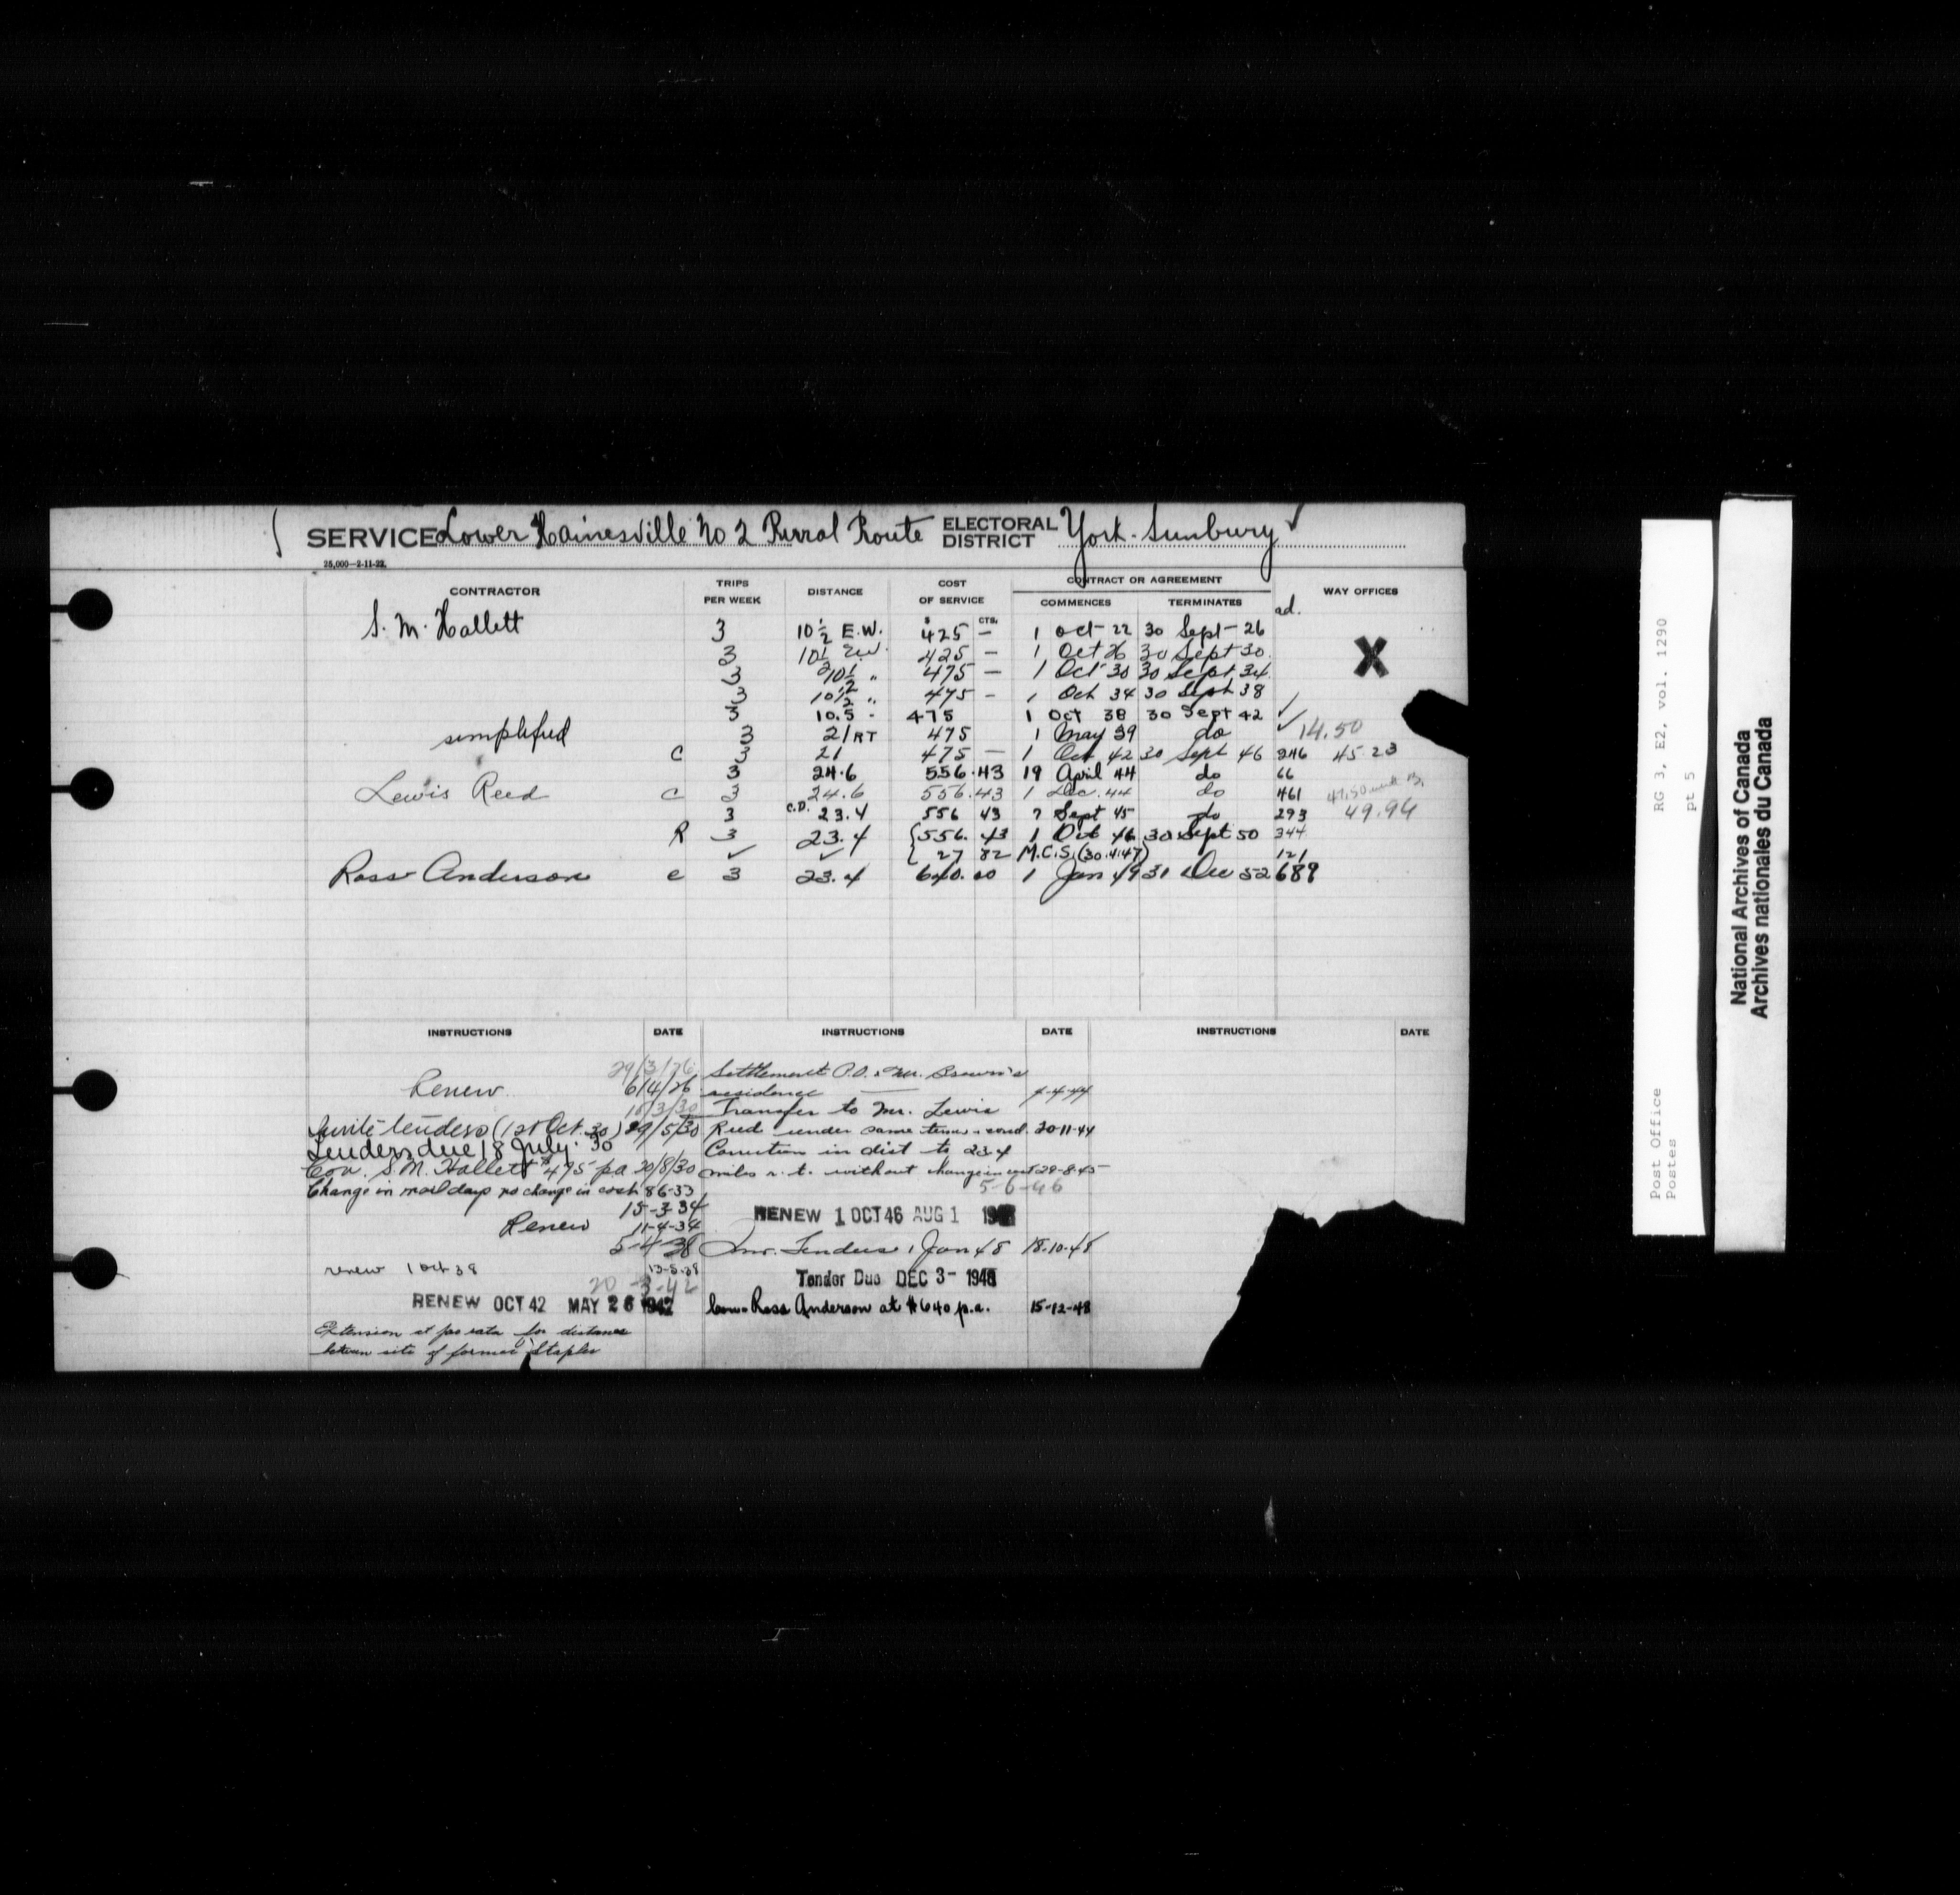 SERVICE Lower Hainesville No 2 Rural Route ELECTORAL DISTRICT York-Sunbury
25,000—2-11-22.
CONTRACTOR TRIPS PER WEEK DISTANCE COST OF SERVICE CONTRACT OR AGREEMENT WAY OFFICES
COMMENCES TERMINATES ad.
$ CTS.
S. M. Hallett 3 10½ E.W. 425 — 1 Oct-22 30 Sept-26
3 10½ E.W. 425 — 1 Oct 26 30 Sept 30
X
3 10½ " 475 — 1 Oct 30 30 Sept 34
3 10½ " 475 - 1 Oct 34 30 Sept 38
3 10.5 - 475 1 Oct 38 30 Sept 42
simplified 3 21 RT 475 1 May 39 do 14.50
C 3 21 475 — 1 Oct 42 30 Sept 46 246 45.23
3 24.6 556.43 19 April 44 do 66
Lewis Reed C 3 24.6 556.43 1 Dec. 44 do 461
3 C.D. 23.4 556 43 7 Sept 45 do 293 49.94
R 3 23.4 {556.43 1 Oct 46 30 Sept 50 344
{ 27 82 M.C.S. (30.4.47) 121
Ross Anderson c 3 23.4 640.00 1 Jan 49 31 Dec 52 689
INSTRUCTIONS DATE INSTRUCTIONS DATE INSTRUCTIONS DATE
29/3/26
Renew 6/4/26
/3/30
Invite tenders (1st Oct. 30) 29/5/30
Tenders due 18 July 30
Con. S.M. Hallett $475 p.a. 20/8/30
Change in mail days no change in cost 8-6-33
15-3-34
Renew 11-4-34
5-4-38
renew 1 Oct 38 13-5-38
20-3-42
RENEW OCT 42 MAY 26 1942
Extension at pro rata for distance
between site of former Staples
Settlement P.O. & Mr. Brown's
residence 4-4-44
Transfer to Mr. Lewis
Reed under same terms & cond. 20-11-44
Correction in dist to 23.4
miles r.t. without change in cost 29-8-45
5-6-46
RENEW 1 OCT 46 AUG 1
Inv. Tenders 1 Jan 48 18-10-48
Tender Due DEC 3- 1948
Con. Ross Anderson at $640 p.a. 15-12-48
Post Office RG 3, E2, vol. 1290
Postes pt 5
National Archives of Canada
Archives nationales du Canada